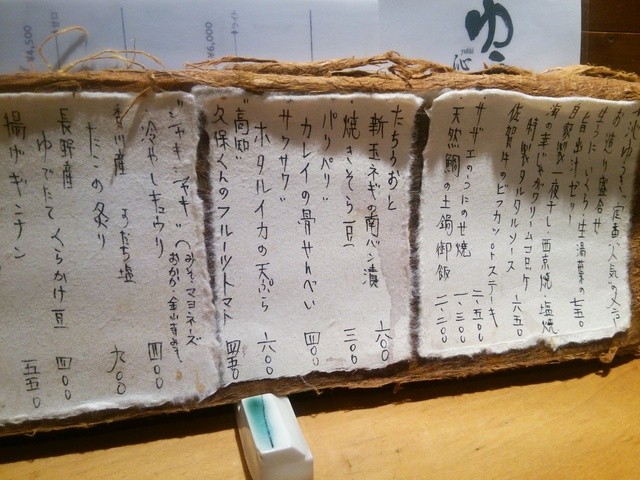 ゆう
¥6,000
¥4,500
お造り盛合せ
生うに・いくら・生湯葉の
旨出汁ジュレ 七五〇
自家製一夜干し・西京焼・塩焼
海の幸じゃがクリームコロッケ
特製タルタルソース 六五〇
佐賀牛のビフカツorステーキ 二.五〇〇
サザエのうにのせ焼 一.三〇〇
天然鯛の土鍋御飯 二.二〇〇
たちうおと
新玉ネギの南バン漬 六〇〇
焼きそら豆 三〇〇
"パリパリ"
カレイの骨せんべい 四〇〇
"サクサク"
ホタルイカの天ぷら 六〇〇
"高知"
久保くんのフルーツトマト 四五〇
"シャキシャキ"(みそ・マヨネーズ
おかか・金山寺みそ)
冷やしキュウリ 四〇〇
香川産 すだち塩
たこの炙り 九〇〇
長野産
ゆでたてくらかけ豆 四〇〇
揚げギンナン 五五〇